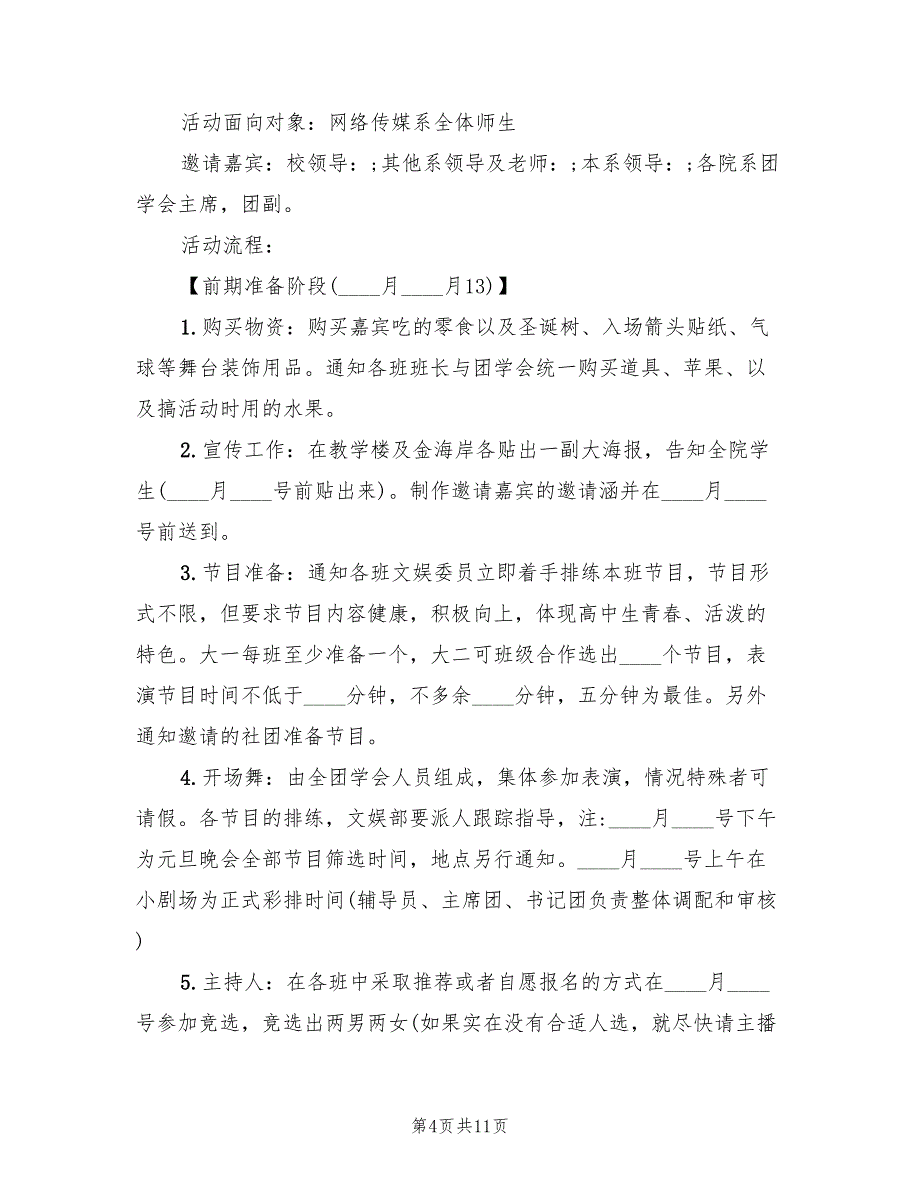 活动面向对象：网络传媒系全体师生
邀请嘉宾：校领导：;其他系领导及老师：;本系领导：;各院系团
学会主席，团副。
活动流程：
【前期准备阶段(____月____月13)】
1. 购买物资：购买嘉宾吃的零食以及圣诞树、入场箭头贴纸、气
球等舞台装饰用品。通知各班班长与团学会统一购买道具、苹果、以
及搞活动时用的水果。
2. 宣传工作：在教学楼及金海岸各贴出一副大海报，告知全院学
生(____月____号前贴出来)。制作邀请嘉宾的邀请涵并在____月____
号前送到。
3. 节目准备：通知各班文娱委员立即着手排练本班节目，节目形
式不限，但要求节目内容健康，积极向上，体现高中生青春、活泼的
特色。大一每班至少准备一个，大二可班级合作选出____个节目，表
演节目时间不低于____分钟，不多余____分钟，五分钟为最佳。另外
通知邀请的社团准备节目。
4. 开场舞：由全团学会人员组成，集体参加表演，情况特殊者可
请假。各节目的排练，文娱部要派人跟踪指导，注:____月____号下午
为元旦晚会全部节目筛选时间，地点另行通知。____月____号上午在
小剧场为正式彩排时间(辅导员、主席团、书记团负责整体调配和审核
)
5. 主持人：在各班中采取推荐或者自愿报名的方式在____月____
号参加竞选，竞选出两男两女(如果实在没有合适人选，就尽快请主播
第4页共11页